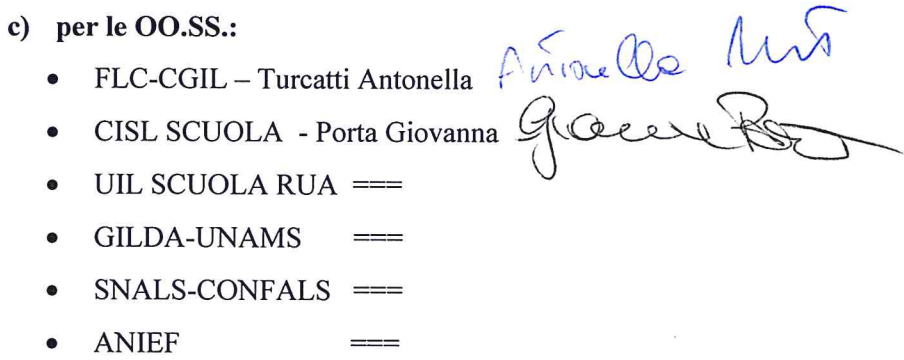 c) per le OO.SS.:
• FLC-CGIL – Turcatti Antonella Antonella
• CISL SCUOLA - Porta Giovanna
• UIL SCUOLA RUA ===
• GILDA-UNAMS ===
• SNALS-CONFALS ===
• ANIEF ===